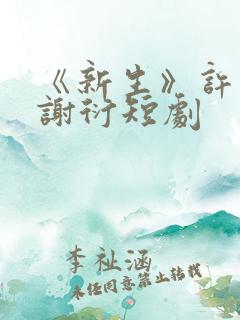 《新生》許
謝衍短劇
李祉涵
未经同意禁止转载